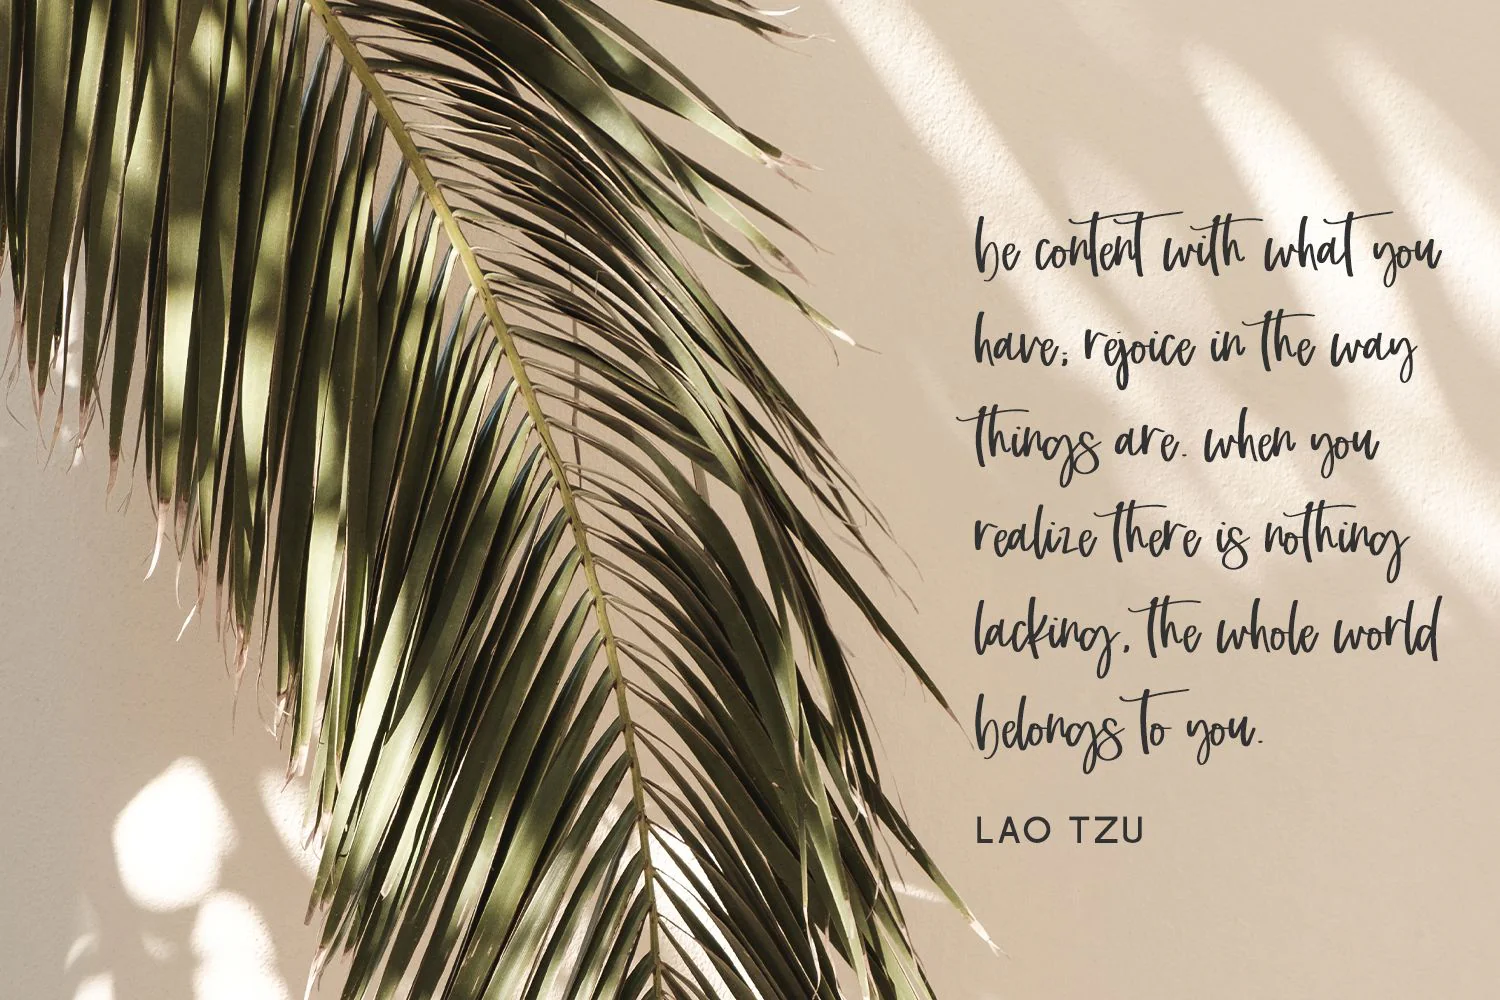 be content with what you
have; rejoice in the way
things are. when you
realize there is nothing
lacking, the whole world
belongs to you.
LAO TZU